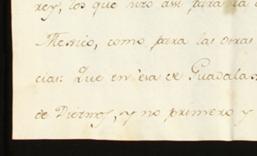 rey, los que hizo assi para la
Mexico, como para las otras
cias: Que en cia de Guadala
de Diezmos, y no primero y